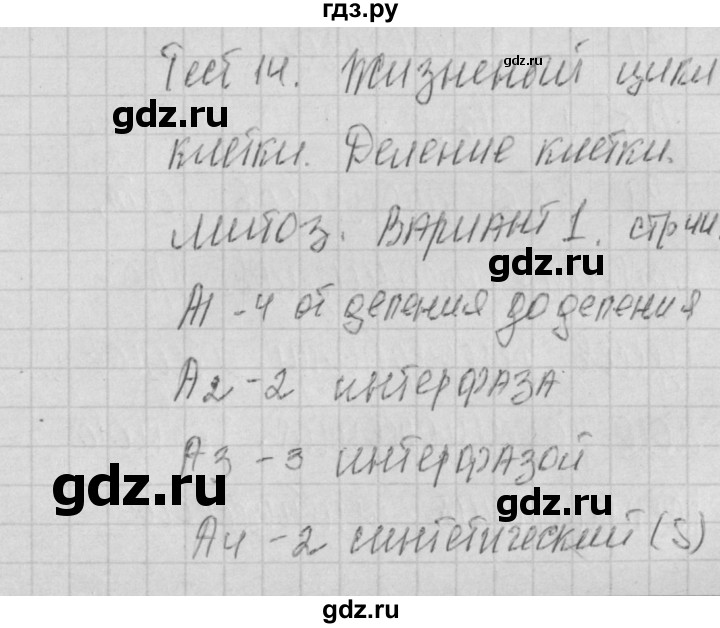 гдз.ру
Тест 14. Жизненый цикл
клетки. Деление клетки.
Митоз. Вариант 1. стр 41.
А1 - 4 от деления до деления
А2 - 2 интерфаза
А3 - 3 интерфазой
А4 - 2 синтетический (S)
gdz.ru
gdz.ru
gdz.ru
gdz.ru
gdz.ru
gdz.ru